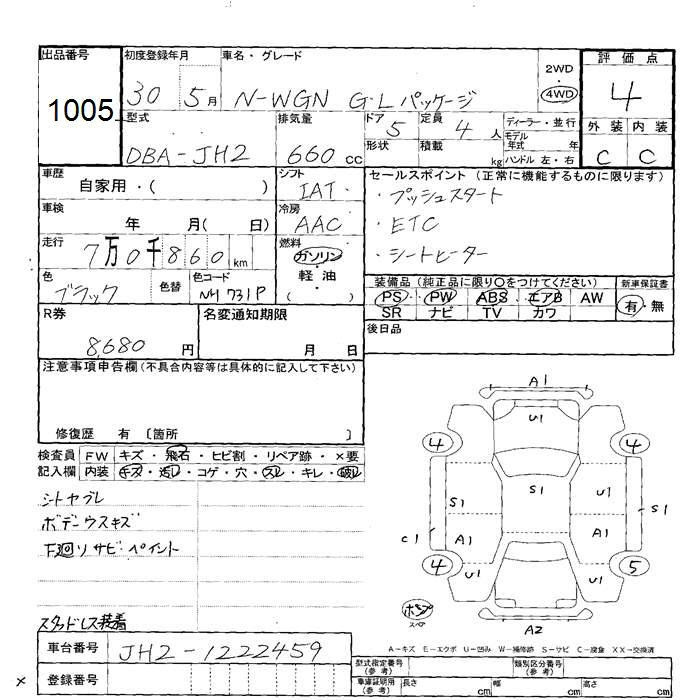 出品番号 初度登録年月 車名・グレード 2WD ・ 4WD 評価点
1005 30 5月 N-WGN G・Lパッケージ 4
型式 排気量 ドア 定員 ディーラー・並行 外装 内装
DBA-JH2 660cc 5 4人 モデル年式 年 C C
形状 積載 kg ハンドル 左・右
車歴 シフト セールスポイント(正常に機能するものに限ります)
自家用・( ) IAT ・プッシュスタート
車検 冷房
年 月( 日) AAC ・ETC
走行 燃料
7万0千860km ガソリン ・シートヒーター
色 色替 色コード 軽・油 装備品(純正品に限り○をつけてください) 新車保証書
ブラック NH731P ( ) PS PW ABS エアB AW 有・無
R券 名変通知期限 SR ナビ TV カワ
8,680円 月 日 後日品
注意事項申告欄(不具合内容等は具体的に記入して下さい)
修復歴 有 〔箇所 〕
検査員 FW キズ・飛石・ヒビ割・リペア跡・×要
記入欄 内装 キズ・汚レ・コゲ・穴・スレ・キレ・破レ
シトヤブレ
ボデーウスキズ
下廻リサビ・ペイント
スタッドレス装着
A1
U1
4 4
S1 S1 U1 S1
C1 A1 A1
4 U1 U1 5
ホンプ
スペア
A2
A-キズ E-エクボ U-凹み W-補修跡 S-サビ C-腐食 XX-交換済
車台番号 JH2-1222459 型式指定番号(参考) 類別区分番号(参考)
× 登録番号 車庫証明用(参考) 長さ cm 幅 cm 高さ cm